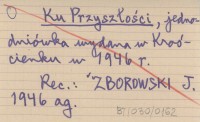 Ku Przyszłości, jedno-
dniówka wydana w Kroś-
cienku w 1946 r.
Rec.: ZBOROWSKI J.
1946 ag.